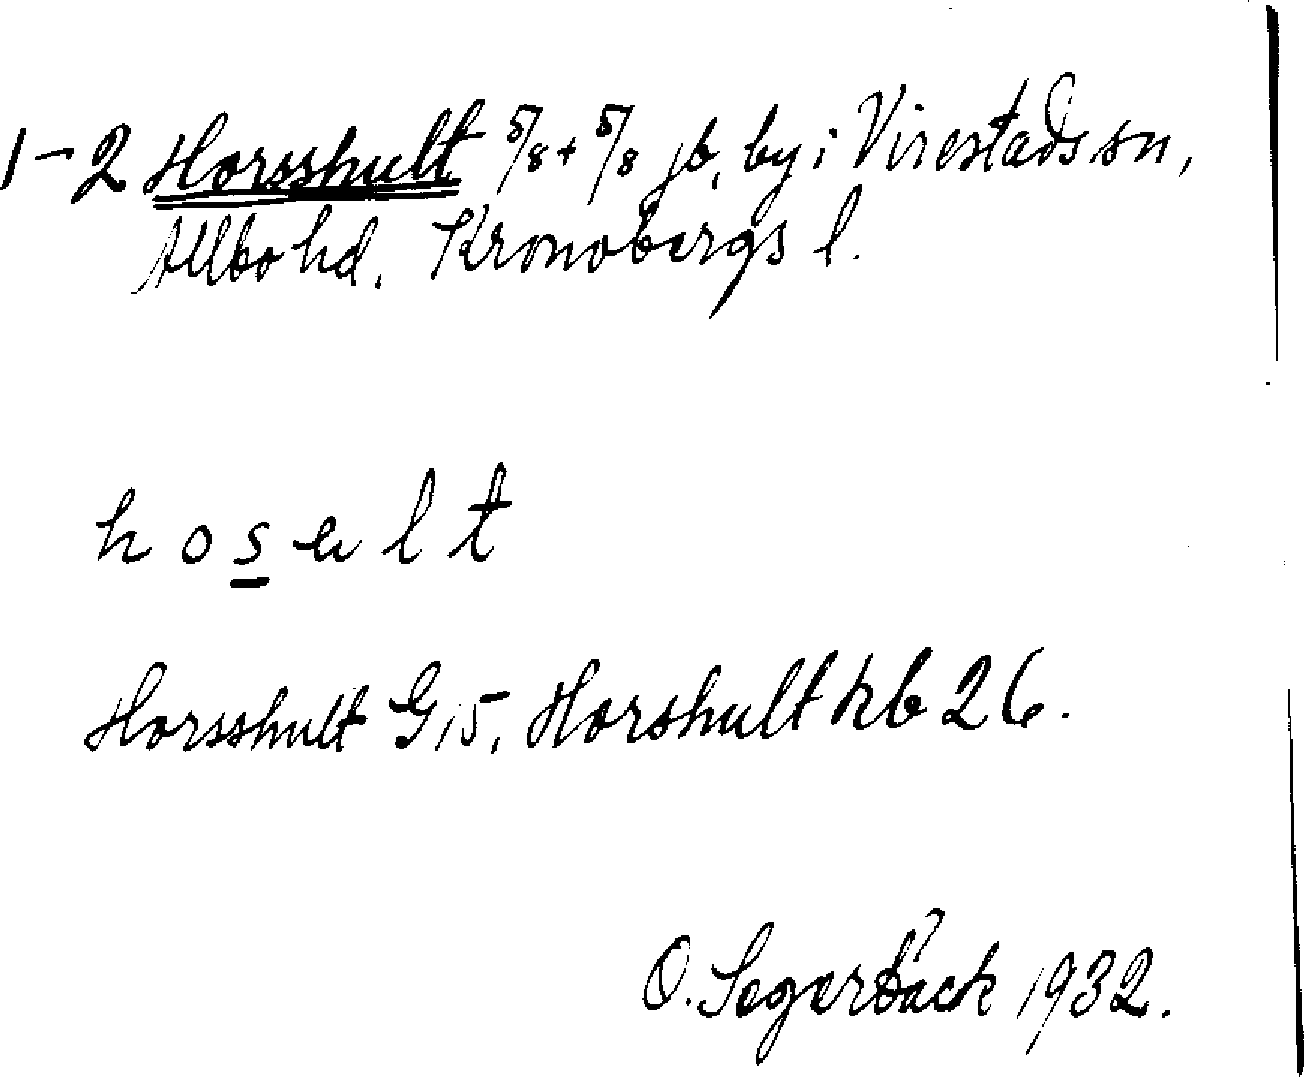 1-2 Horsshult 5/8 + 5/8 jb, by i Virestads sn,
Allbo hd. Kronobergs l.
h o s u l t
Horsshult G 15, Horshult kb 26.
O. Segerbäck 1932.